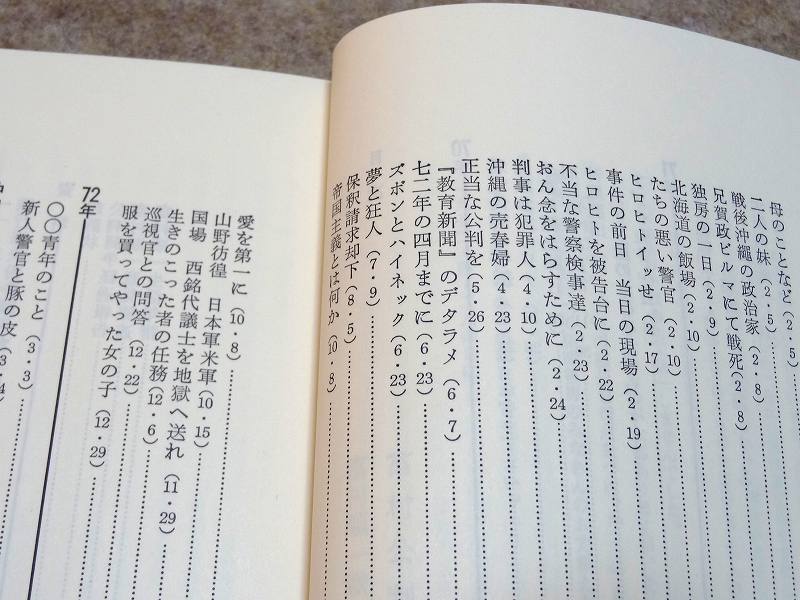 母のことなど(2・5)
二人の妹(2・5)
戦後沖縄の政治家(2・8)
兄賀政ビルマにて戦死(2・8)
独房の一日(2・9)
北海道の飯場(2・10)
たちの悪い警官(2・10)
ヒロヒトイッせ(2・17)
事件の前日　当日の現場(2・19)
ヒロヒトを被告台に(2・22)
不当な警察検事達(2・23)
おん念をはらすために(2・24)
判事は犯罪人(4・10)
沖縄の売春婦(4・23)
正当な公判を(5・26)
『教育新聞』のデタラメ(6・7)
七二年の四月までに(6・23)
ズボンとハイネック(6・23)
夢と狂人(7・9)
保釈請求却下(8・5)
帝国主義とは何か(10・8)
愛を第一に(10・8)
山野彷徨　日本軍米軍(10・15)
国場　西銘代議士を地獄へ送れ(11・29)
生きのこった者の任務(12・6)
巡視官との問答(12・22)
服を買ってやった女の子(12・29)
72年
〇〇青年のこと(3・3)
新人警官と豚の皮(3・4)